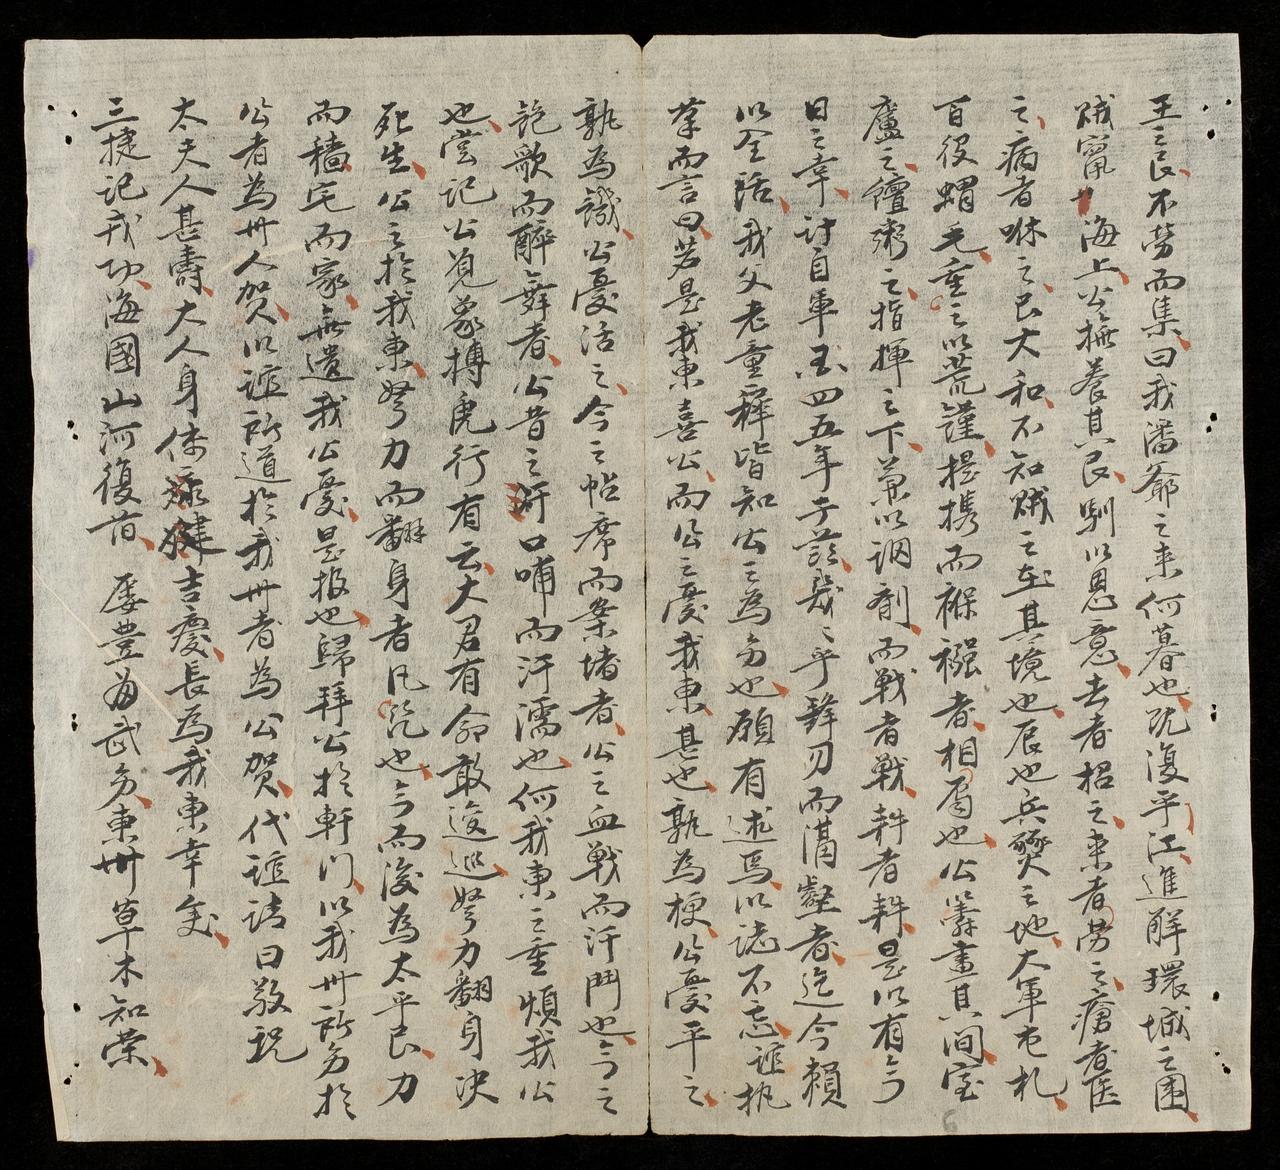 王之良不勞而集曰我潘爺之來何暮也既復平江進解環城之圍
賊竄海上公撫養其民馴以恩意去者招之來者勞之瘡者医
之病者咻之民大和不知賊之在其境也辰也兵燹之地大軍屯札
百役蝟毛重之以荒謹提携而褓襁者相屬也公籌畫其間室
廬之饘粥之指揮之下兼以調劑而戰者戰耕者耕是以有今
日之幸計自軍四五年于茲幾乎鋒刃而溝壑者迄今賴
以全活我父老童穉皆知公之為勞也願有述焉以誌不忘誼执
筆而言曰若是我東喜公而公之憂我東甚也孰為梗公憂平之
孰為譏公憂活之今之帖席而案堵者公之血戰而汗鬥也今之
飽歌而醉舞者公昔之口哺而汗濡也何我東之重煩我公
也嘗記公覓象搏虎行有云大君有命敢逡巡努力翻身决
死生公之於我東努力而翻身者凡幾也今而後為太平民力
而穡宅而家無遺我公憂是报也歸拜公於軒门以我卅所勞於
公者為卅人賀以誼所道於我卅者為公賀代誼請曰敬祝
太夫人甚壽大人身体康健吉慶長為我東幸矣
三捷記戎功海國山河復舊 屡豐為武勞東卅草木知榮